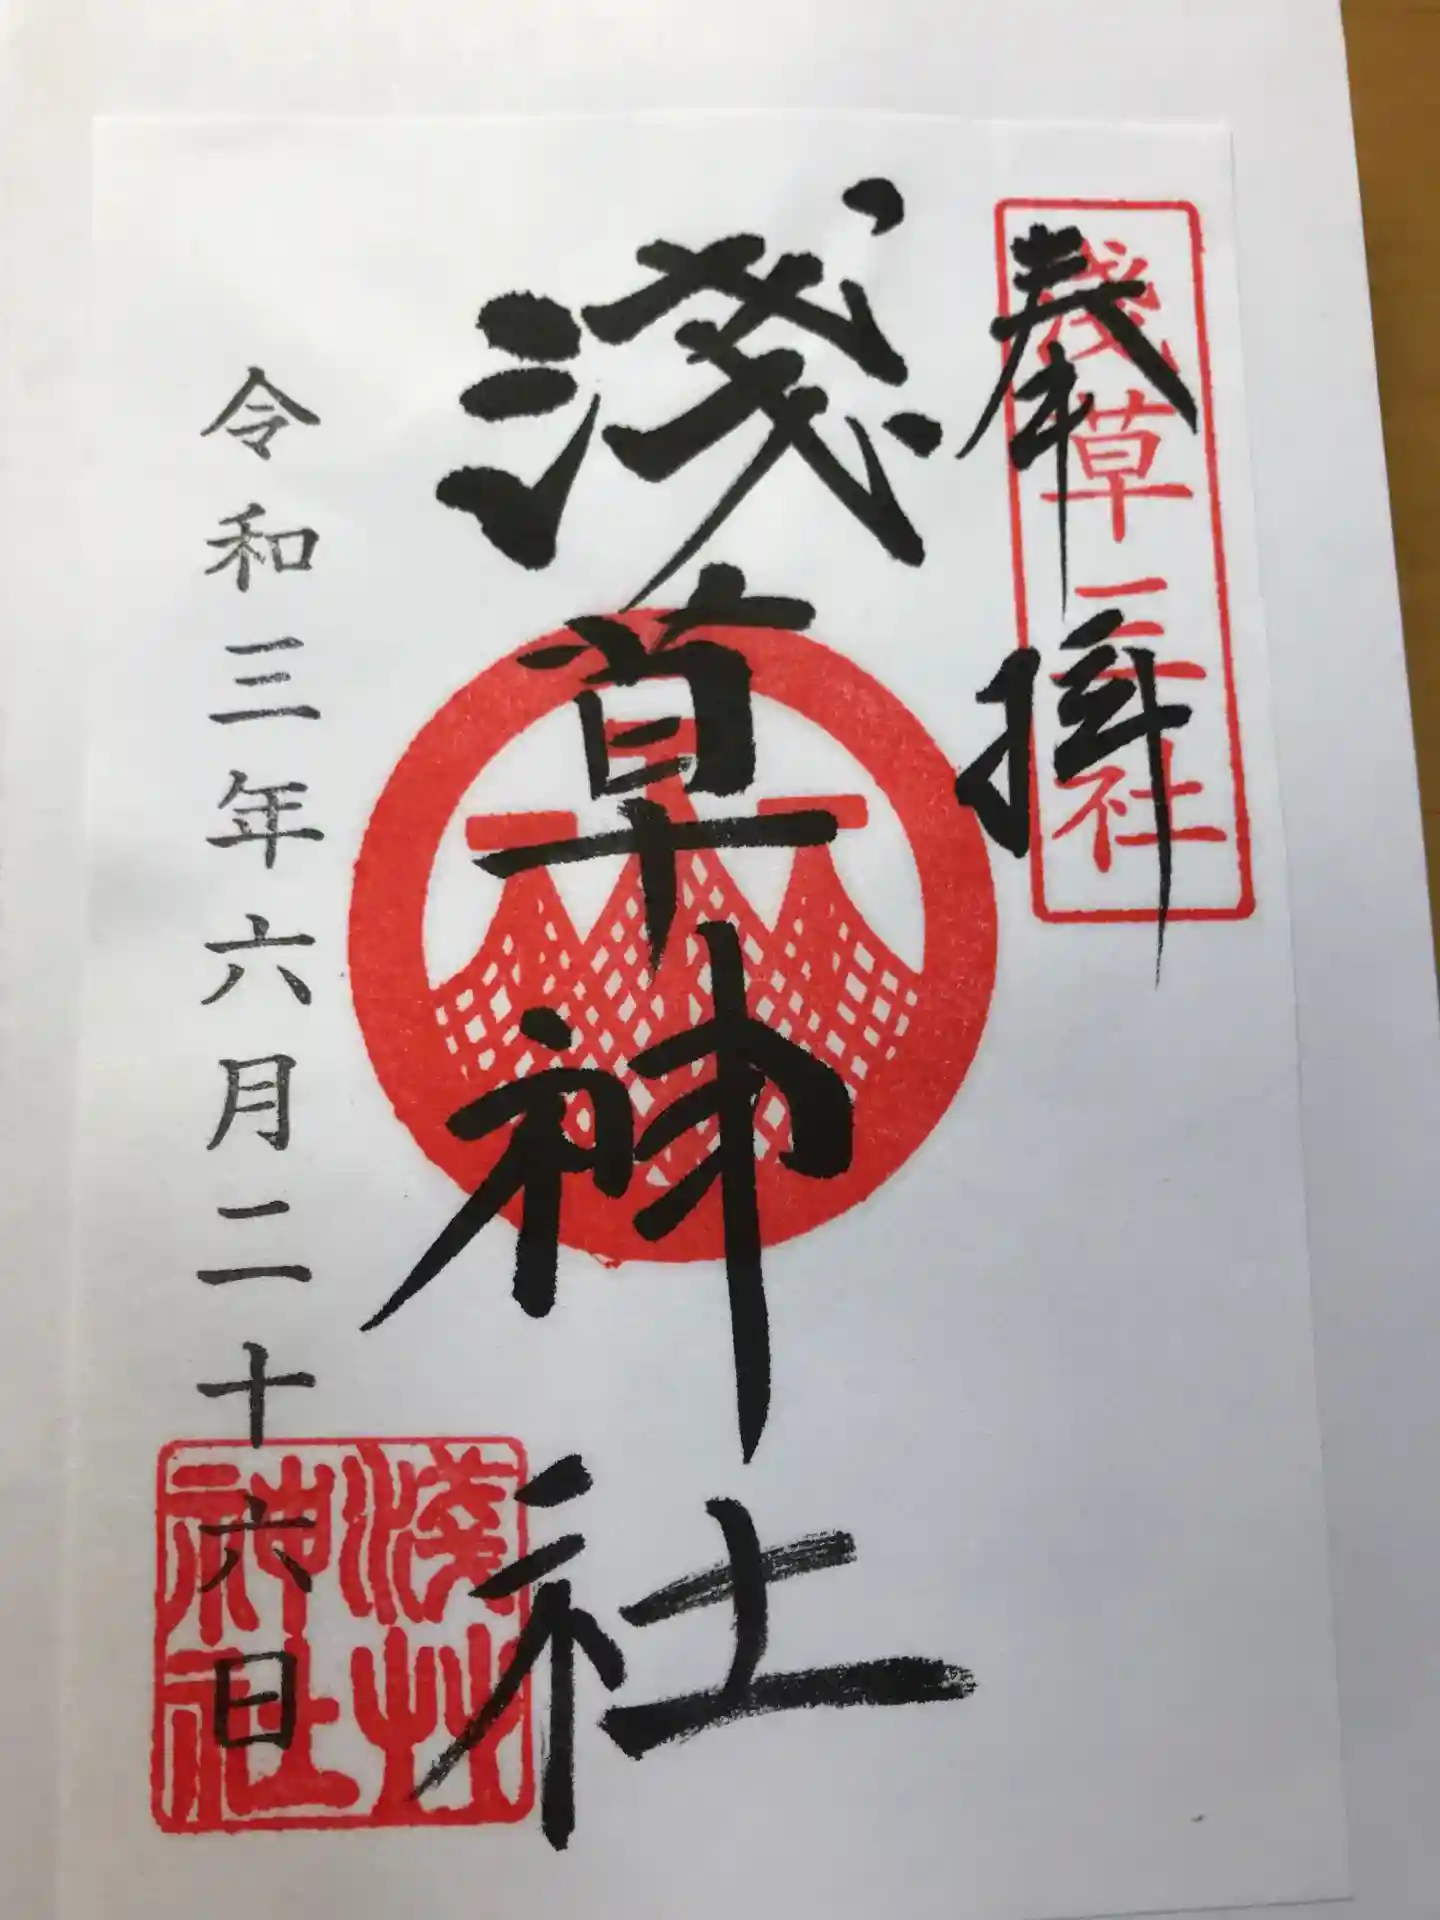 奉拝
淺草三社
淺草神社
令和三年六月二十六日
淺艸
神社